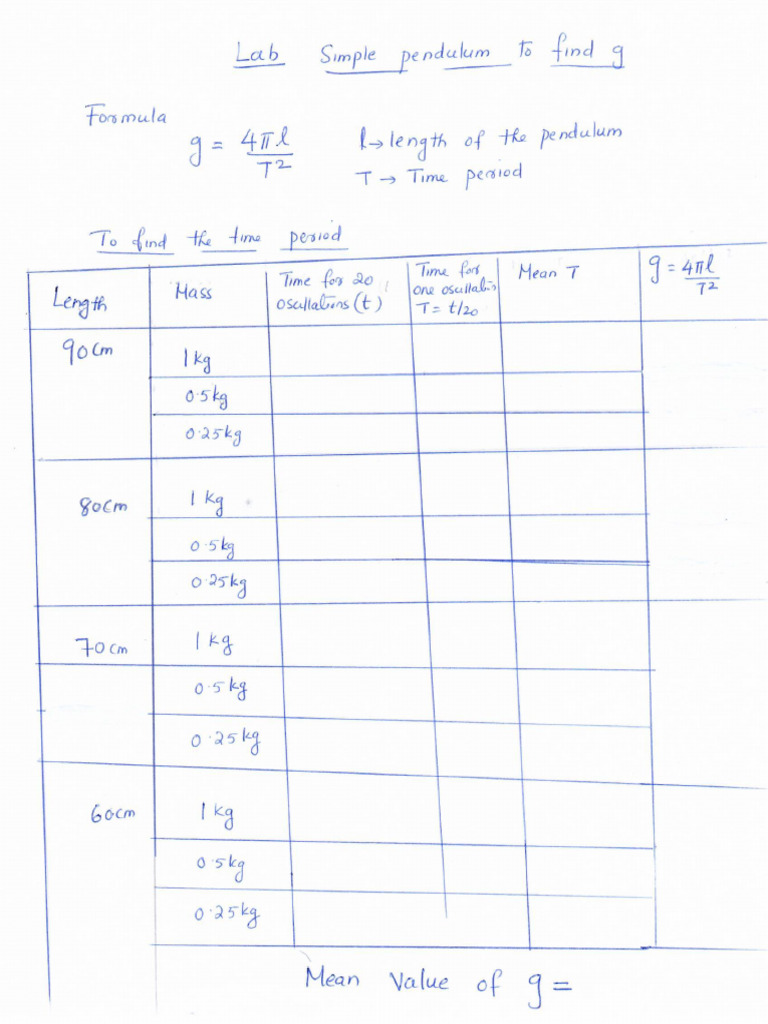 Lab Simple pendulum to find g
Formula
g = 4πl/T² l → length of the pendulum
T → Time period
To find the time period
Length Mass Time for 20 oscillations (t) Time for one oscillation T = t/20 Mean T g = 4πl/T²
90cm 1kg
0.5kg
0.25kg
80cm 1 kg
0.5kg
0.25kg
70cm 1 kg
0.5kg
0.25kg
60cm 1 kg
0.5kg
0.25kg
Mean Value of g =